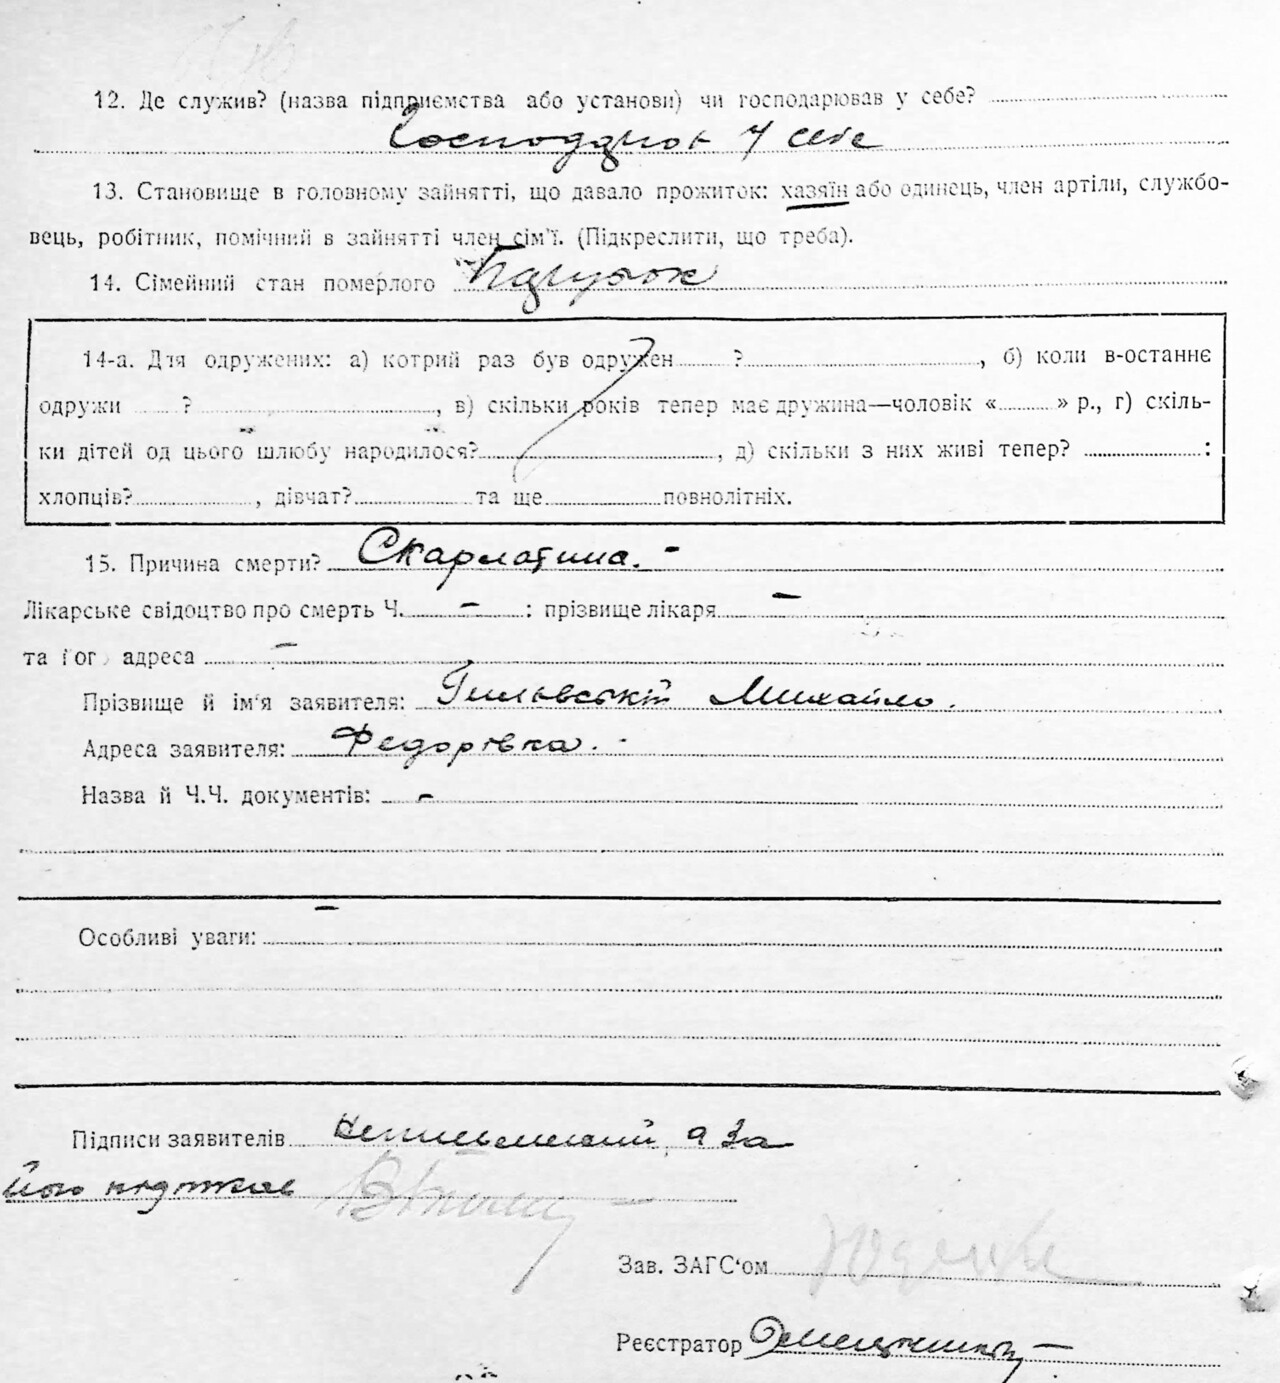 12. Де служив? (назва підприємства або установи) чи господарював у себе?
Господарює у себе
13. Становище в головному зайнятті, що давало прожиток: хазяїн або одинець, член артіли, службо-
вець, робітник, помічний в зайнятті член сім'ї. (Підкреслити, що треба).
14. Сімейний стан померлого
14-а. Для одружених: а) котрий раз був одружен ? , б) коли в-останнє
одружи ? , в) скільки років тепер має дружина—чоловік « » р., г) скіль-
ки дітей од цього шлюбу народилося? , д) скільки з них живі тепер? :
хлопців? , дівчат? та ще повнолітніх.
15. Причина смерти? Скарлатина. -
Лікарське свідоцтво про смерть Ч. - : прізвище лікаря -
та ог адреса -
Прізвище й ім'я заявителя: Михайло.
Адреса заявителя: Федорівка. -
Назва й Ч.Ч. документів: -
Особливі уваги: -
Підписи заявителів а за
його
Зав. ЗАГС'ом
Реєстратор